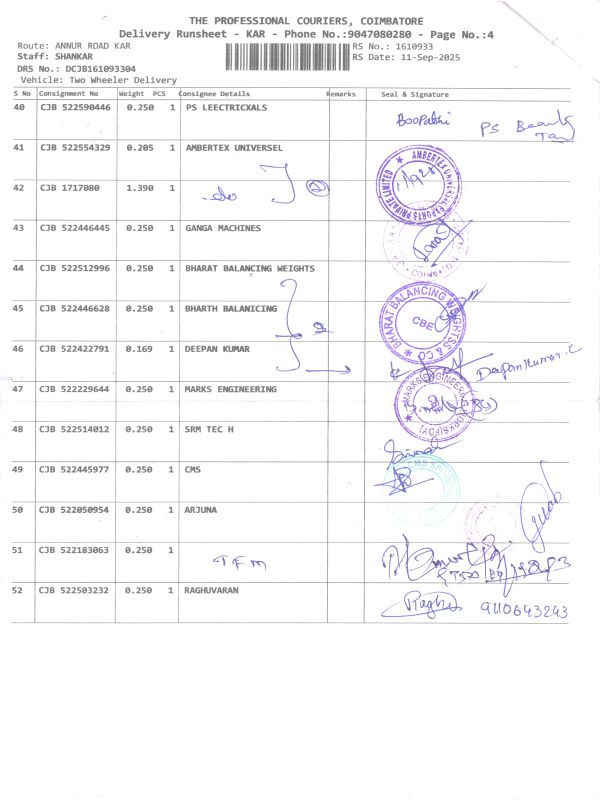 THE PROFESSIONAL COURIERS, COIMBATORE
Delivery Runsheet - KAR - Phone No.:9047080280 - Page No.:4
Route: ANNUR ROAD KAR
RS No.: 1610933
Staff: SHANKAR
RS Date: 11-Sep-2025
DRS No.: DCJB161093304
Vehicle: Two Wheeler Delivery
S No Consignment No Weight PCS Consignee Details Remarks Seal & Signature
40 CJB 522590446 0.250 1 PS LEECTRICXALS Boopathi PS
41 CJB 522554329 0.205 1 AMBERTEX UNIVERSEL
AMBERTEX UNIVERSAL EXPORTS PRIVATE LIMITED
42 CJB 1717080 1.390 1 do 2
43 CJB 522446445 0.250 1 GANGA MACHINES
44 CJB 522512996 0.250 1 BHARAT BALANCING WEIGHTS
BHARAT BALANCING WEIGHTSS & CO
CBE
45 CJB 522446628 0.250 1 BHARTH BALANICING
46 CJB 522422791 0.169 1 DEEPAN KUMAR Deepankumar.C
47 CJB 522229644 0.250 1 MARKS ENGINEERING
MARKS ENGINEERING WORKS
48 CJB 522514012 0.250 1 SRM TEC H
49 CJB 522445977 0.250 1 CMS
50 CJB 522050954 0.250 1 ARJUNA
51 CJB 522183063 0.250 1 TFM
52 CJB 522503232 0.250 1 RAGHUVARAN Raghu 9110643243